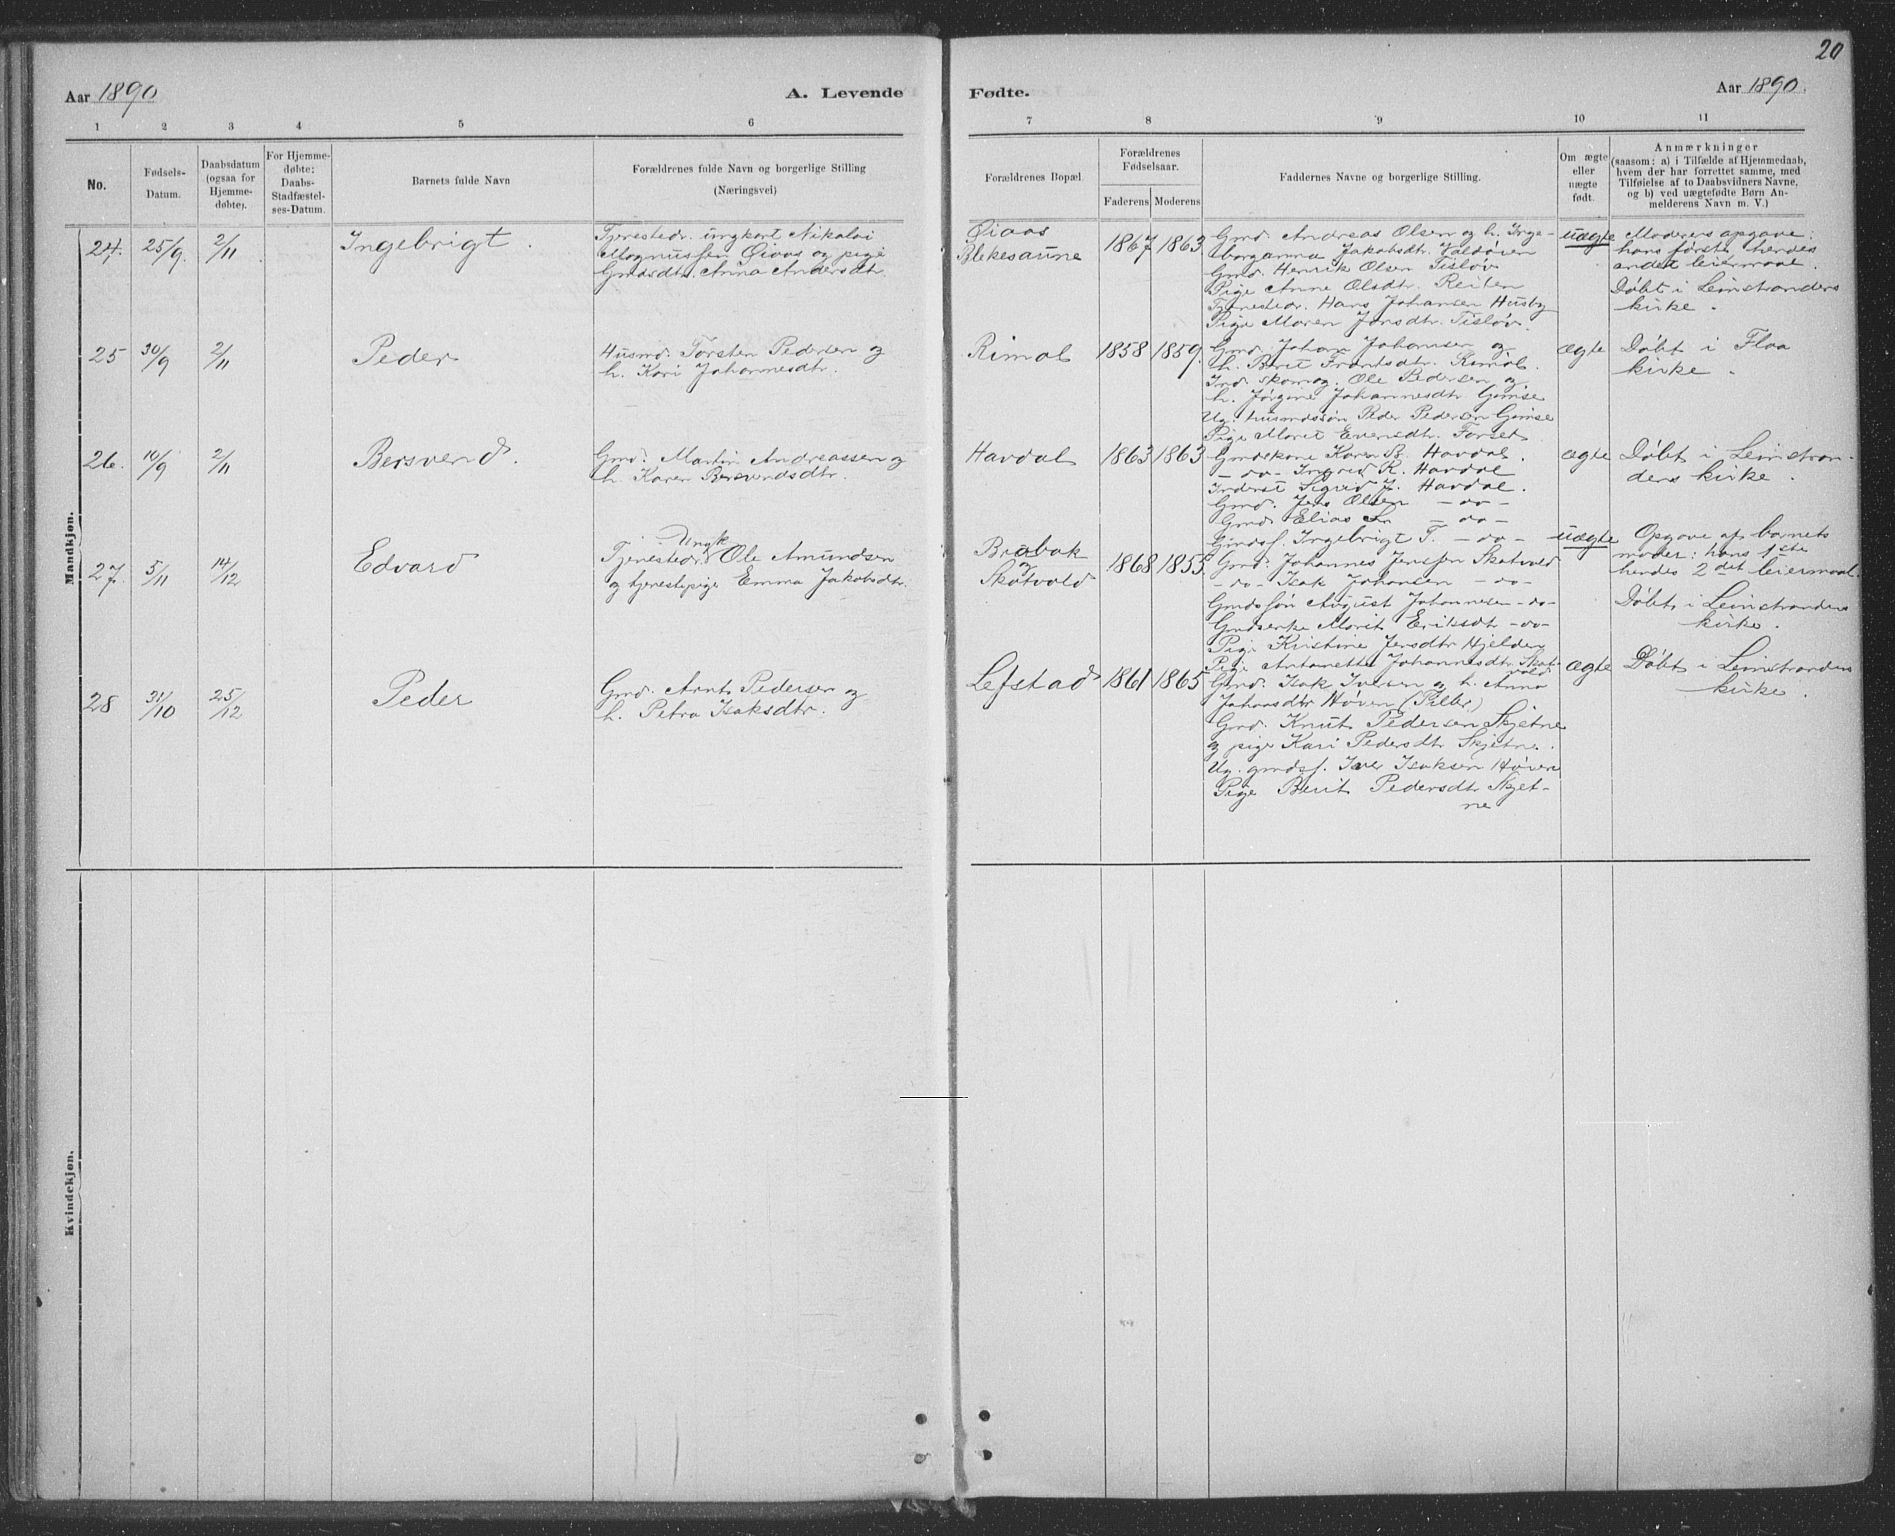 20
Aar 1890
A. Levende
Fødte.
Aar 1890.
1 2 3 4 5 6
7 8 9 10 11
No.
Fødsels-
Datum.
Daabsdatum
(ogsaa for
Hjemme-
døbte).
For Hjemme-
døbte;
Daabs-
Stadfæstel-
ses-Datum.
Barnets fulde Navn
Forældrenes fulde Navn og borgerlige Stilling
(Næringsvei)
Forældrenes Bopæl.
Forældrenes
Fødselsaar.
Faderens Moderens
Faddernes Navne og borgerlige Stilling.
Om ægte
eller
uægte
født.
Anmærkninger
(saasom: a) i Tilfælde af Hjemmedaab,
hvem der har forrettet samme, med
Tilføielse af to Daabsvidners Navne,
og b) ved uægtefødte Børn An-
melderens Navn m. V.)
Mandkjøn.
24. 25/9. 2/11
Ingebrigt.
Tjenestedr. ungkarl Nikolai
Magnussen Øiaas og pige
Gmdsdtr. Anna Andersdtr.
Øiaas
Blekesaune
1867 1863
Gmd. Andreas Olsen og h. Inge-
borganna Jakobsdtr. Valdøien
Gmd. Henrik Olsen Tisløv
Pige Anne Olsdtr. Reiten
Tjenestedr. Hans Johansen Husby
Pige Maren Jonsdtr. Tisløv.
uægte
Moderens opgave:
hans første hendes
andet leiermaal.
Døbt i Leinstrandens
kirke.
25 30/9 2/11
Peder
Husmd. Torsten Pedersen og
h. Kari Johannesdtr.
Rimol
1858 1859.
Gmd. Johan Johansen og
h. Berit Frantsdtr. Rimol.
Ind. skomag. Ole Pedersen og
h. Jørgine Johannesdtr. Gimse
Ug. husmdssøn Peder Pedersen Gimse
Pige Marit Evensdtr. Forset.
ægte
Døbt i Flaa
kirke.
26. 10/9 2/11
Bersvend.
Gmd. Martin Andreassen og
h. Karen Bersvendsdtr.
Havdal
1863 1863
Gmdskone Karen B. Havdal.
-do- Ingrid R. Havdal
Inderst Sigrid J. Havdal.
Gmd. Jens Olsen -do-
Gmd. Elias -do-
Gmdsf. Ingebrigt F. -do-
ægte
Døbt i Leinstran-
dens kirke.
27. 5/11 14/12
Edvard
Ungk.
Tjenestedr. Ole Amundsen
og tjenestepige Emma Jakobsdtr.
Bråbak
og
Skotvold
1868 1855
Gmd. Johannes Jenssen Skotvold
-do- Isak Johansen -do-
Gmdssøn August Johannesen -do-
Gmdsenke Marit Eriksdtr -do-
Pige Kristine Jensdtr Hjelden
Pige Antonette Johannesdtr. Skot-
vold
uægte
Opgave af barnets
moder: hans 1ste
hendes 2det leiermaal.
Døbt i Leinstrandens
kirke.
28 31/10 25/12
Peder
Gmd. Arnt Pedersen og
h. Petra Isaksdtr.
Lefstad
1861 1865
Gmd. Isak Iversen og h. Anna
Johansdtr Høven
Gmd. Knut Pedersen Skjetne
og pige Kari Pedersdtr Skjetne.
Ug. gmdsf. Iver Isaksen Høven
Pige Berit Pedersdtr Skjet-
ne
ægte
Døbt i Leinstrandens
kirke.
Kvindekjøn.